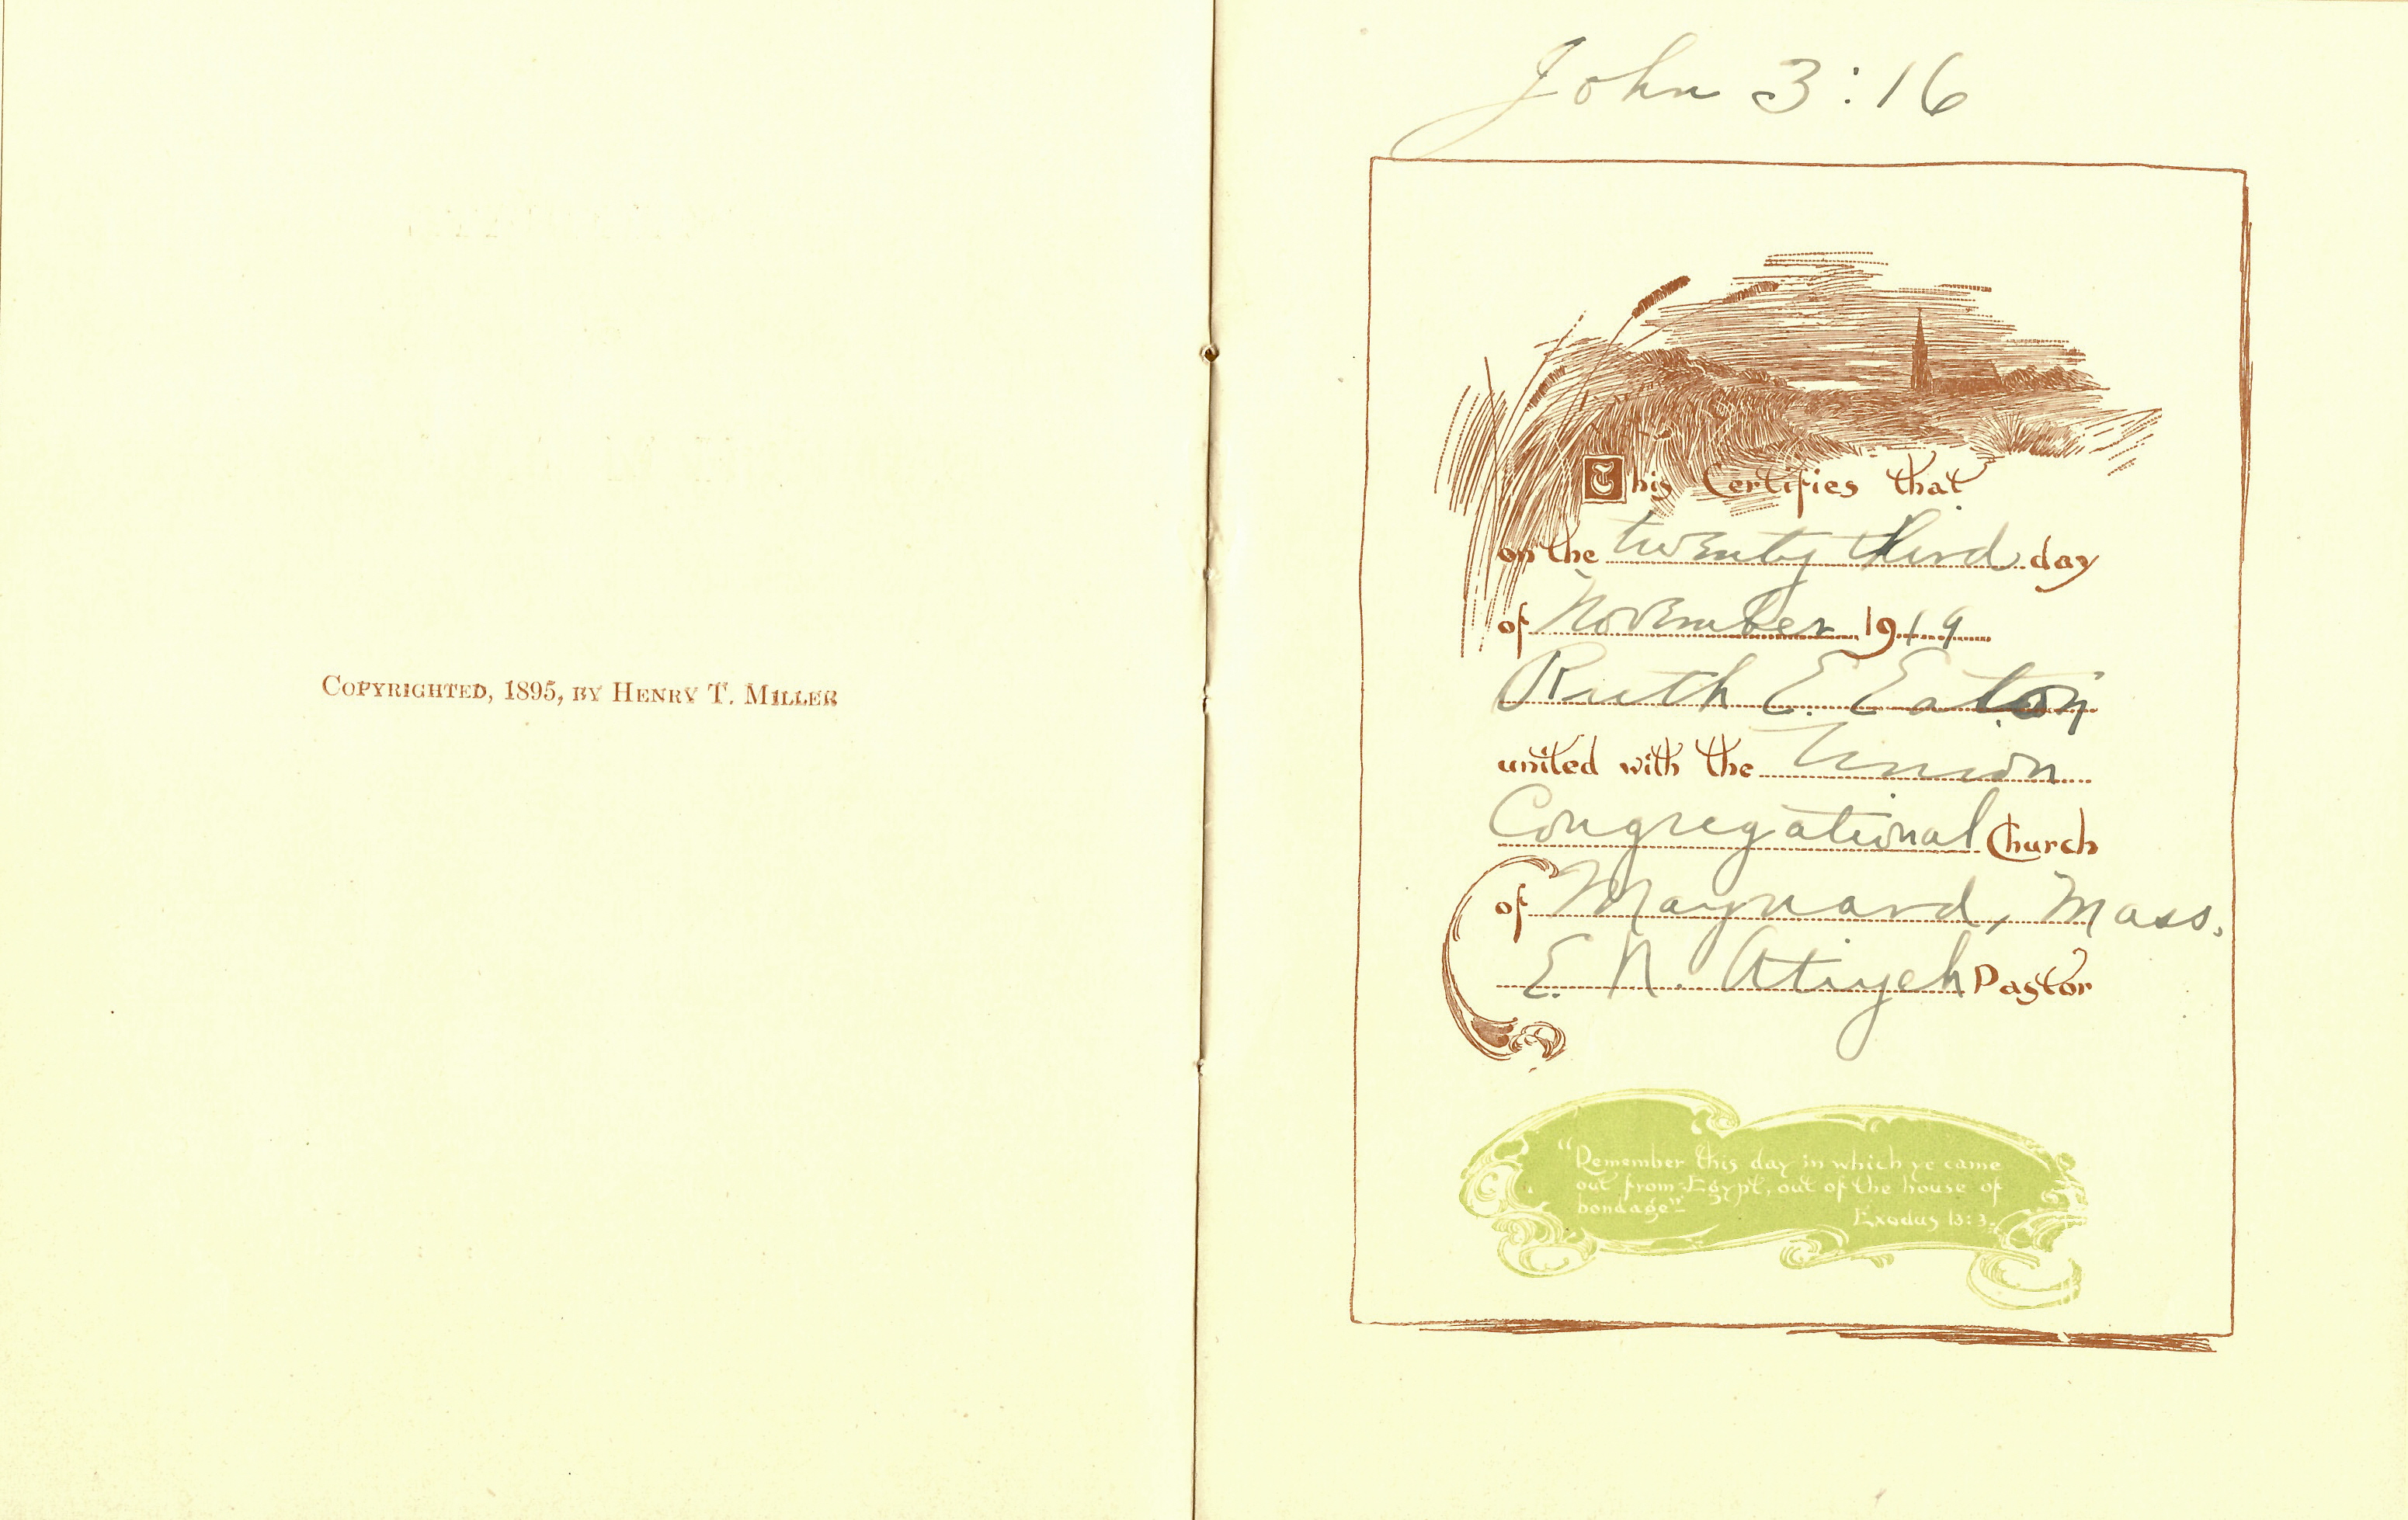 COPYRIGHTED, 1895, BY HENRY T. MILLER
John 3:16
This Certifies that
on the twenty third day
of November 1919
Ruth E. Eaton
united with the Union
Congregational Church
of Maynard, Mass.
E. N. Atiyeh Pastor
"Remember this day in which ye came
out from Egypt, out of the house of
bondage"
Exodus 13:3.